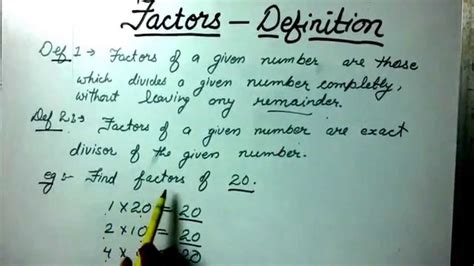 Factors – Definition
Def 1 → Factors of a given number are those
which divides a given number completely,
without leaving any remainder.
Def 2 :→ Factors of a given number are exact
divisor of the given number.
eg :- Find factors of 20.
1 × 20 = 20
2 × 10 = 20
4 × 20